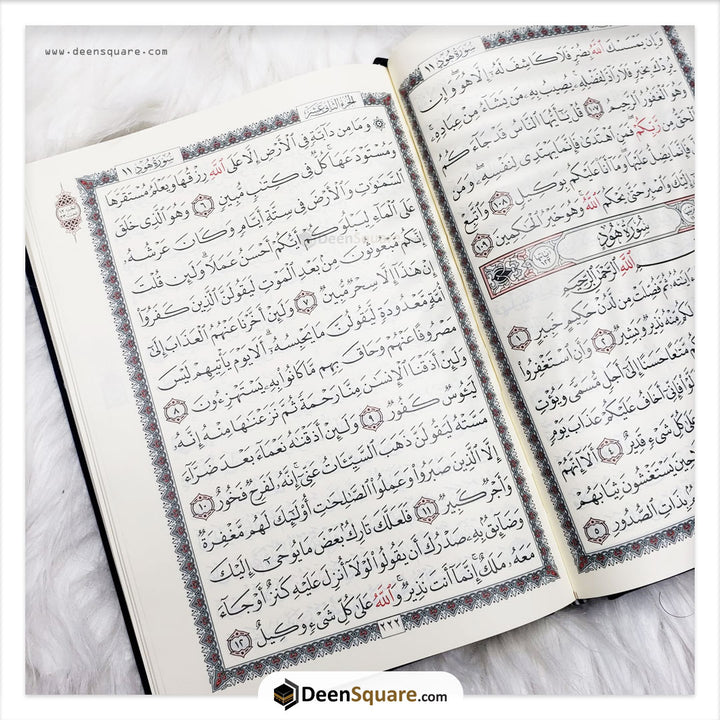 www.deensquare.com
سُورَةُ هُودٍ ١١
وَإِن يَمْسَسْكَ ٱللَّهُ بِضُرٍّ فَلَا كَاشِفَ لَهُۥٓ إِلَّا هُوَ ۖ وَإِن
يُرِدْكَ بِخَيْرٍ فَلَا رَآدَّ لِفَضْلِهِۦ ۚ يُصِيبُ بِهِۦ مَن يَشَآءُ مِنْ عِبَادِهِۦ ۚ
وَهُوَ ٱلْغَفُورُ ٱلرَّحِيمُ ١٠٧ قُلْ يَٰٓأَيُّهَا ٱلنَّاسُ قَدْ جَآءَكُمُ
ٱلْحَقُّ مِن رَّبِّكُمْ ۖ فَمَنِ ٱهْتَدَىٰ فَإِنَّمَا يَهْتَدِى لِنَفْسِهِۦ ۖ وَمَن
فَإِنَّمَا يَضِلُّ عَلَيْهَا ۖ وَمَآ أَنَا۠ عَلَيْكُم بِوَكِيلٍ ١٠٨ وَٱتَّبِعْ
إِلَيْكَ وَٱصْبِرْ حَتَّىٰ يَحْكُمَ ٱللَّهُ ۚ وَهُوَ خَيْرُ ٱلْحَٰكِمِينَ ١٠٩
سُورَةُ هُودٍ
ٱللَّهِ ٱلرَّحْمَٰنِ ٱلرَّحِيمِ
ءَايَٰتُهُۥ ثُمَّ فُصِّلَتْ مِن لَّدُنْ حَكِيمٍ خَبِيرٍ ١
لَكُم مِّنْهُ نَذِيرٌ وَبَشِيرٌ ٢ وَأَنِ ٱسْتَغْفِرُوا۟
مَّتَٰعًا حَسَنًا إِلَىٰٓ أَجَلٍ مُّسَمًّى وَيُؤْتِ
فَإِنِّىٓ أَخَافُ عَلَيْكُمْ عَذَابَ يَوْمٍ
عَلَىٰ كُلِّ شَىْءٍ قَدِيرٌ ٤ أَلَآ إِنَّهُمْ
حِينَ يَسْتَغْشُونَ ثِيَابَهُمْ
بِذَاتِ ٱلصُّدُورِ ٥
الجزء الثاني عشر
سُورَةُ هُودٍ ١١
وَمَا مِن دَآبَّةٍ فِى ٱلْأَرْضِ إِلَّا عَلَى ٱللَّهِ رِزْقُهَا وَيَعْلَمُ مُسْتَقَرَّهَا
وَمُسْتَوْدَعَهَا ۚ كُلٌّ فِى كِتَٰبٍ مُّبِينٍ ٦ وَهُوَ ٱلَّذِى خَلَقَ
ٱلسَّمَٰوَٰتِ وَٱلْأَرْضَ فِى سِتَّةِ أَيَّامٍ وَكَانَ عَرْشُهُۥ
عَلَى ٱلْمَآءِ لِيَبْلُوَكُمْ أَيُّكُمْ أَحْسَنُ عَمَلًا ۗ وَلَئِن قُلْتَ
إِنَّكُم مَّبْعُوثُونَ مِنۢ بَعْدِ ٱلْمَوْتِ لَيَقُولَنَّ ٱلَّذِينَ كَفَرُوٓا۟
إِنْ هَٰذَآ إِلَّا سِحْرٌ مُّبِينٌ ٧ وَلَئِنْ أَخَّرْنَا عَنْهُمُ ٱلْعَذَابَ إِلَىٰٓ
أُمَّةٍ مَّعْدُودَةٍ لَّيَقُولُنَّ مَا يَحْبِسُهُۥٓ ۗ أَلَا يَوْمَ يَأْتِيهِمْ لَيْسَ
مَصْرُوفًا عَنْهُمْ وَحَاقَ بِهِم مَّا كَانُوا۟ بِهِۦ يَسْتَهْزِءُونَ ٨
وَلَئِنْ أَذَقْنَا ٱلْإِنسَٰنَ مِنَّا رَحْمَةً ثُمَّ نَزَعْنَٰهَا مِنْهُ إِنَّهُۥ
لَيَـُٔوسٌ كَفُورٌ ٩ وَلَئِنْ أَذَقْنَٰهُ نَعْمَآءَ بَعْدَ ضَرَّآءَ
مَسَّتْهُ لَيَقُولَنَّ ذَهَبَ ٱلسَّيِّـَٔاتُ عَنِّىٓ ۚ إِنَّهُۥ لَفَرِحٌ فَخُورٌ ١٠
إِلَّا ٱلَّذِينَ صَبَرُوا۟ وَعَمِلُوا۟ ٱلصَّٰلِحَٰتِ أُو۟لَٰٓئِكَ لَهُم مَّغْفِرَةٌ
وَأَجْرٌ كَبِيرٌ ١١ فَلَعَلَّكَ تَارِكٌۢ بَعْضَ مَا يُوحَىٰٓ إِلَيْكَ
وَضَآئِقٌۢ بِهِۦ صَدْرُكَ أَن يَقُولُوا۟ لَوْلَآ أُنزِلَ عَلَيْهِ كَنزٌ أَوْ جَآءَ
مَعَهُۥ مَلَكٌ ۚ إِنَّمَآ أَنتَ نَذِيرٌ ۚ وَٱللَّهُ عَلَىٰ كُلِّ شَىْءٍ وَكِيلٌ ١٢
٢٢٢
DeenSquare
DeenSquare.com